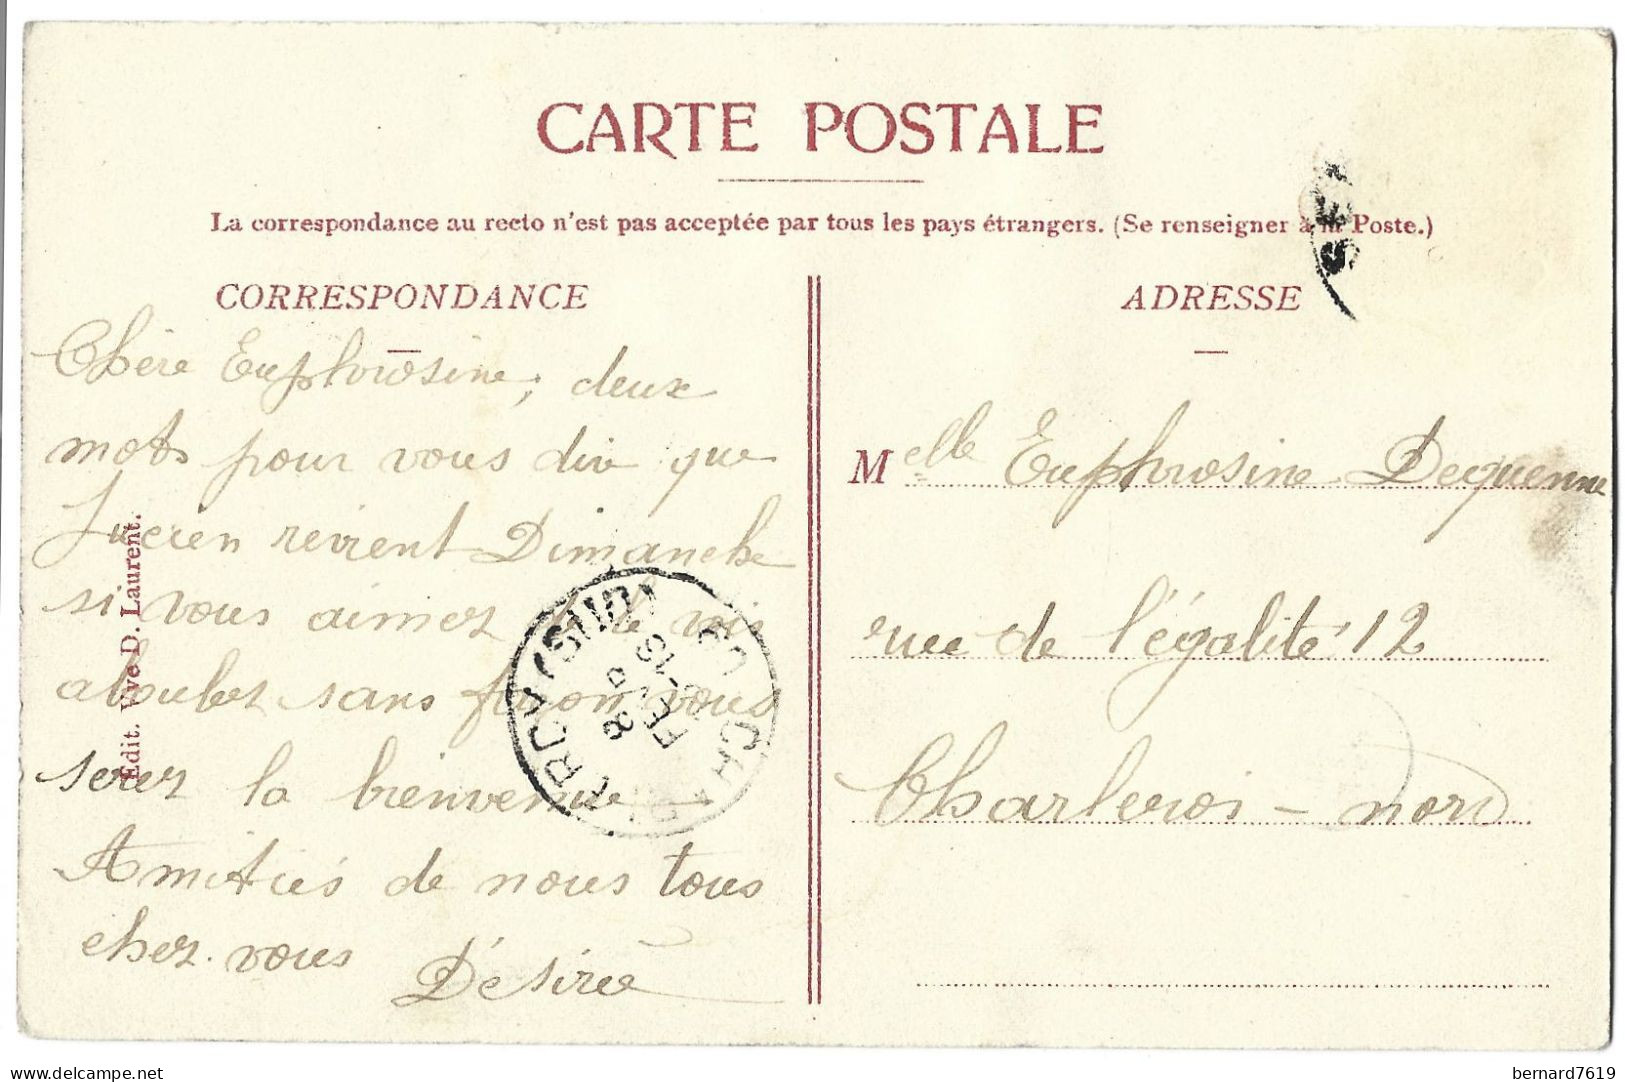 CARTE POSTALE
La correspondance au recto n'est pas acceptée par tous les pays étrangers. (Se renseigner à la Poste.)
CORRESPONDANCE
Chère Euphrosine, deux
mots pour vous dire que
Lucien revient Dimanche
si vous aimez de le voir
aboulez sans façon vous
serez la bienvenue
Amitiés de nous tous
chez vous Désirée
Edit. Vve D. Laurent.
ADRESSE
Melle Euphrosine Dequenne
rue de l'égalité 12
Charleroi - nord
(SUD)
bernard7619
delcampe.net